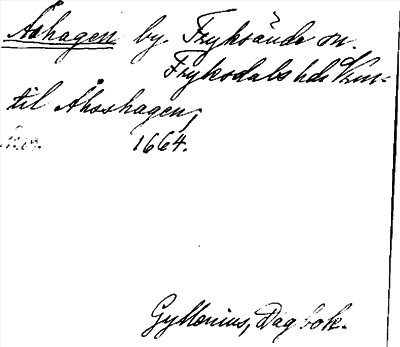 Åshagen by. Fryksände sn.
Fryksdals hd. Vrm-
til Åhsshagen,
1664.
Gyllenius, Dagbok.